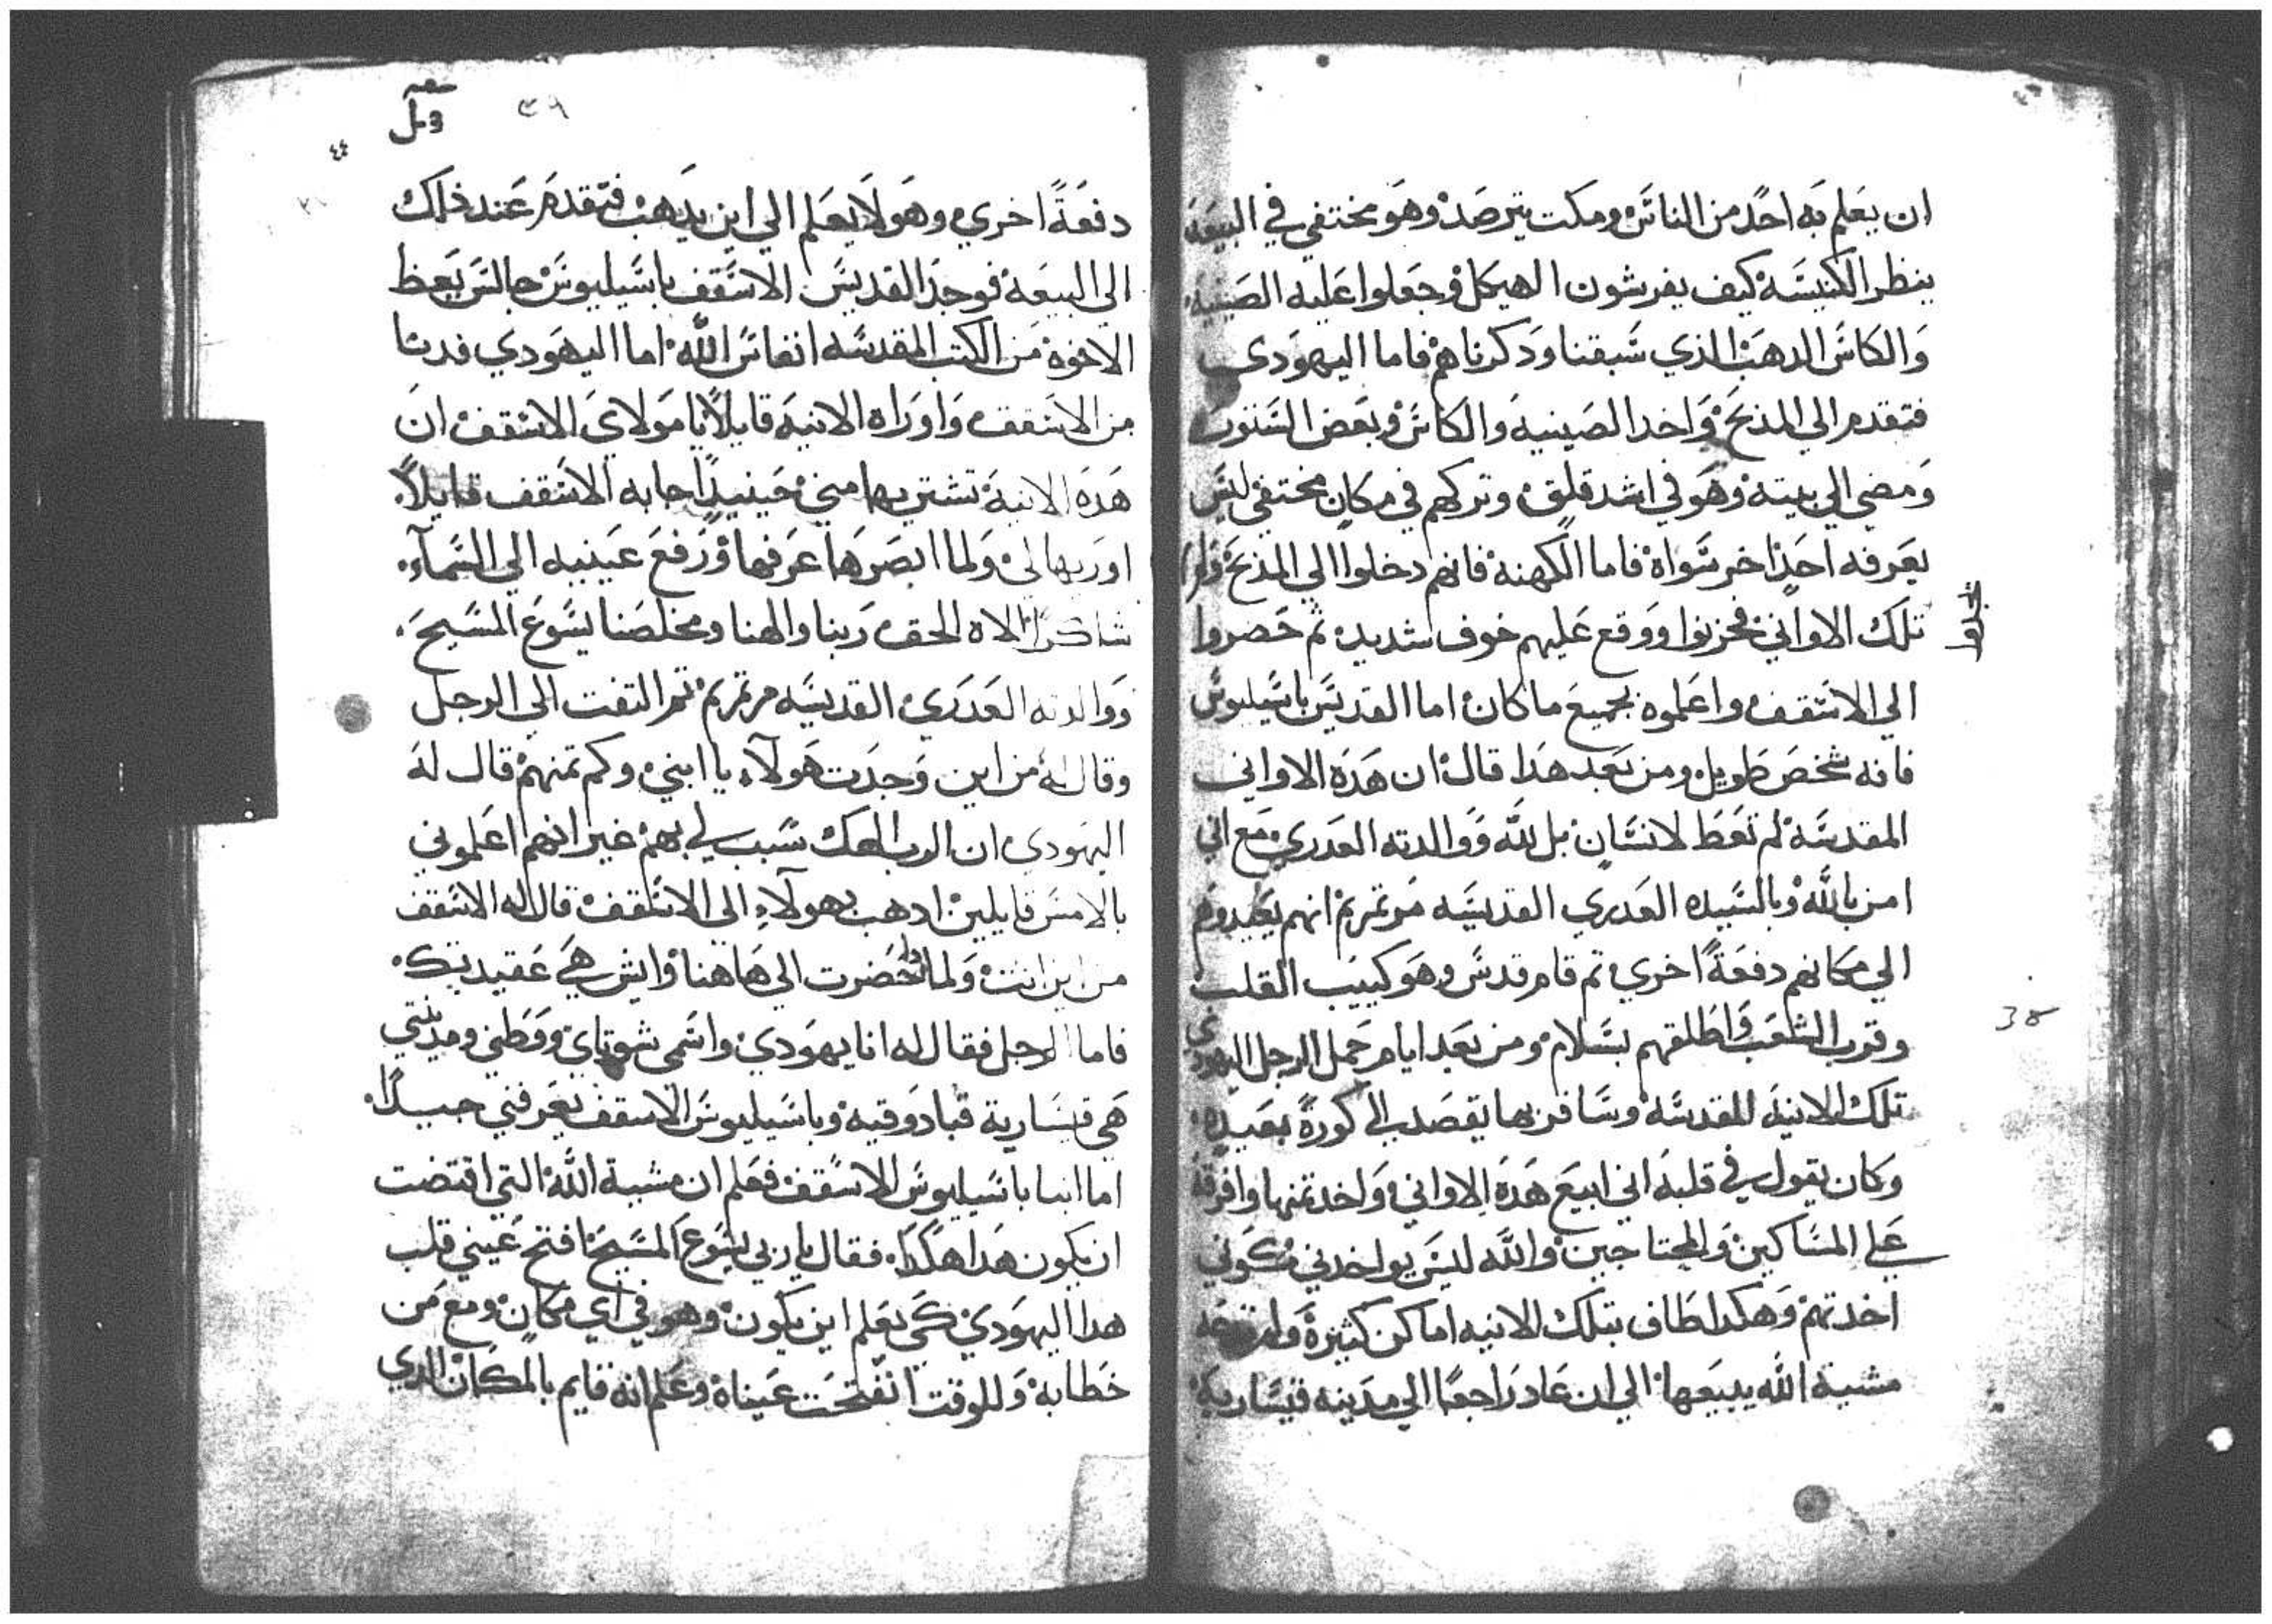 ان يعلم به احد من الناس ومكت يترصد وهو مختفي في البيعه
ينظر الكنيسة كيف يفرشون الهيكل وجعلوا عليه الصينيه
والكاس الدهب الذي سبقنا ودكرناهم فاما اليهودى
فتقدم الي المذبح واخد الصينيه والكاس وبعض الستور
ومضي الي بيته وهو في اشد قلق وتركهم في مكان مختفي ليس
يعرفه احدا خر سواه فاما الكهنه فانهم دخلوا الي المذبح ولم
يجدوا
تلك الاواني فحزنوا ووقع عليهم خوف شديد ثم حضروا
الي الاسقف واعلموه بجميع ما كان اما القديس باسيليوس
فانه شخص طويل ومن بعد هدا قال ان هده الاواني
المقدسة لم تعط لانسان بل لله ووالدته العدري مع اني
امن بالله وبالسيده العدري القديسه مرتمريم انهم يعيدوهم
الي مكانهم دفعة اخري تم قام قدس وهو كييب القلب
وقرب الشعب واطلقهم بسلام ومن بعد ايام حمل الرجل اليهودي
تلك الانيه المقدسه وسافر بها يقصد الي كورة بعيده
وكان يقول في قلبه اني ابيع هده الاواني واخد تمنها وافرقه
علي المساكين والمحتاجين والله ليس يواخدني كوني
اخدتهم وهكدا طاف بتلك الانيه اماكن كثيرة ولم
مشية الله يبيعها الي ان عاد راجعا الي مدينه قيساريه
38
٣٩
٤٤
دفعة اخري وهو لا يعلم الي اين يدهب فتقدم عند ذلك
الي البيعه فوجد القديس الاسقف باسيليوس جالس يعظ
الاخوة من الكتب المقدسه انفاس الله اما اليهودي فدنا
من الاسقف واوراه الانيه قايلا يا مولاي الاسقف ان
هده الانية تشتريها مني حينيدا جابه الاسقف قايلا
اوريها لي ولما ابصرها عرفها ورفع عينيه الي السماء
شاكرا الاه الحق ربنا والهنا ومخلصنا يسوع المسيح
ووالدته العدري القديسه مرتمريم تم التفت الي الرجل
وقال له من اين وجدت هولاء يا ابني وكم تمنهم قال له
اليهودي ان الرب الهك سبب لي بهم غير انهم اعلموني
بالامس قايلين ادهب بهولاء الي الاسقف قال له الاسقف
من اين انت ولمادا حضرت الي هاهنا وايش هي عقيدتك
فاما الرجل فقال له انا يهودي واسمي شوتاي ووطني ومدينتي
هي قيسارية قبادوقيه وباسيليوس الاسقف يعرفني جيدا
اما انبا باسيليوس الاسقف فعلم ان مشية الله التي اقتضت
ان يكون هدا هكدا فقال يا ربي يسوع المسيح افتح عيني قلب
هدا اليهودي كي يعلم اين يكون وهو في اي مكان ومع من
خطابه وللوقت انفتحت عيناه وعلم انه قايم بالمكان الدي